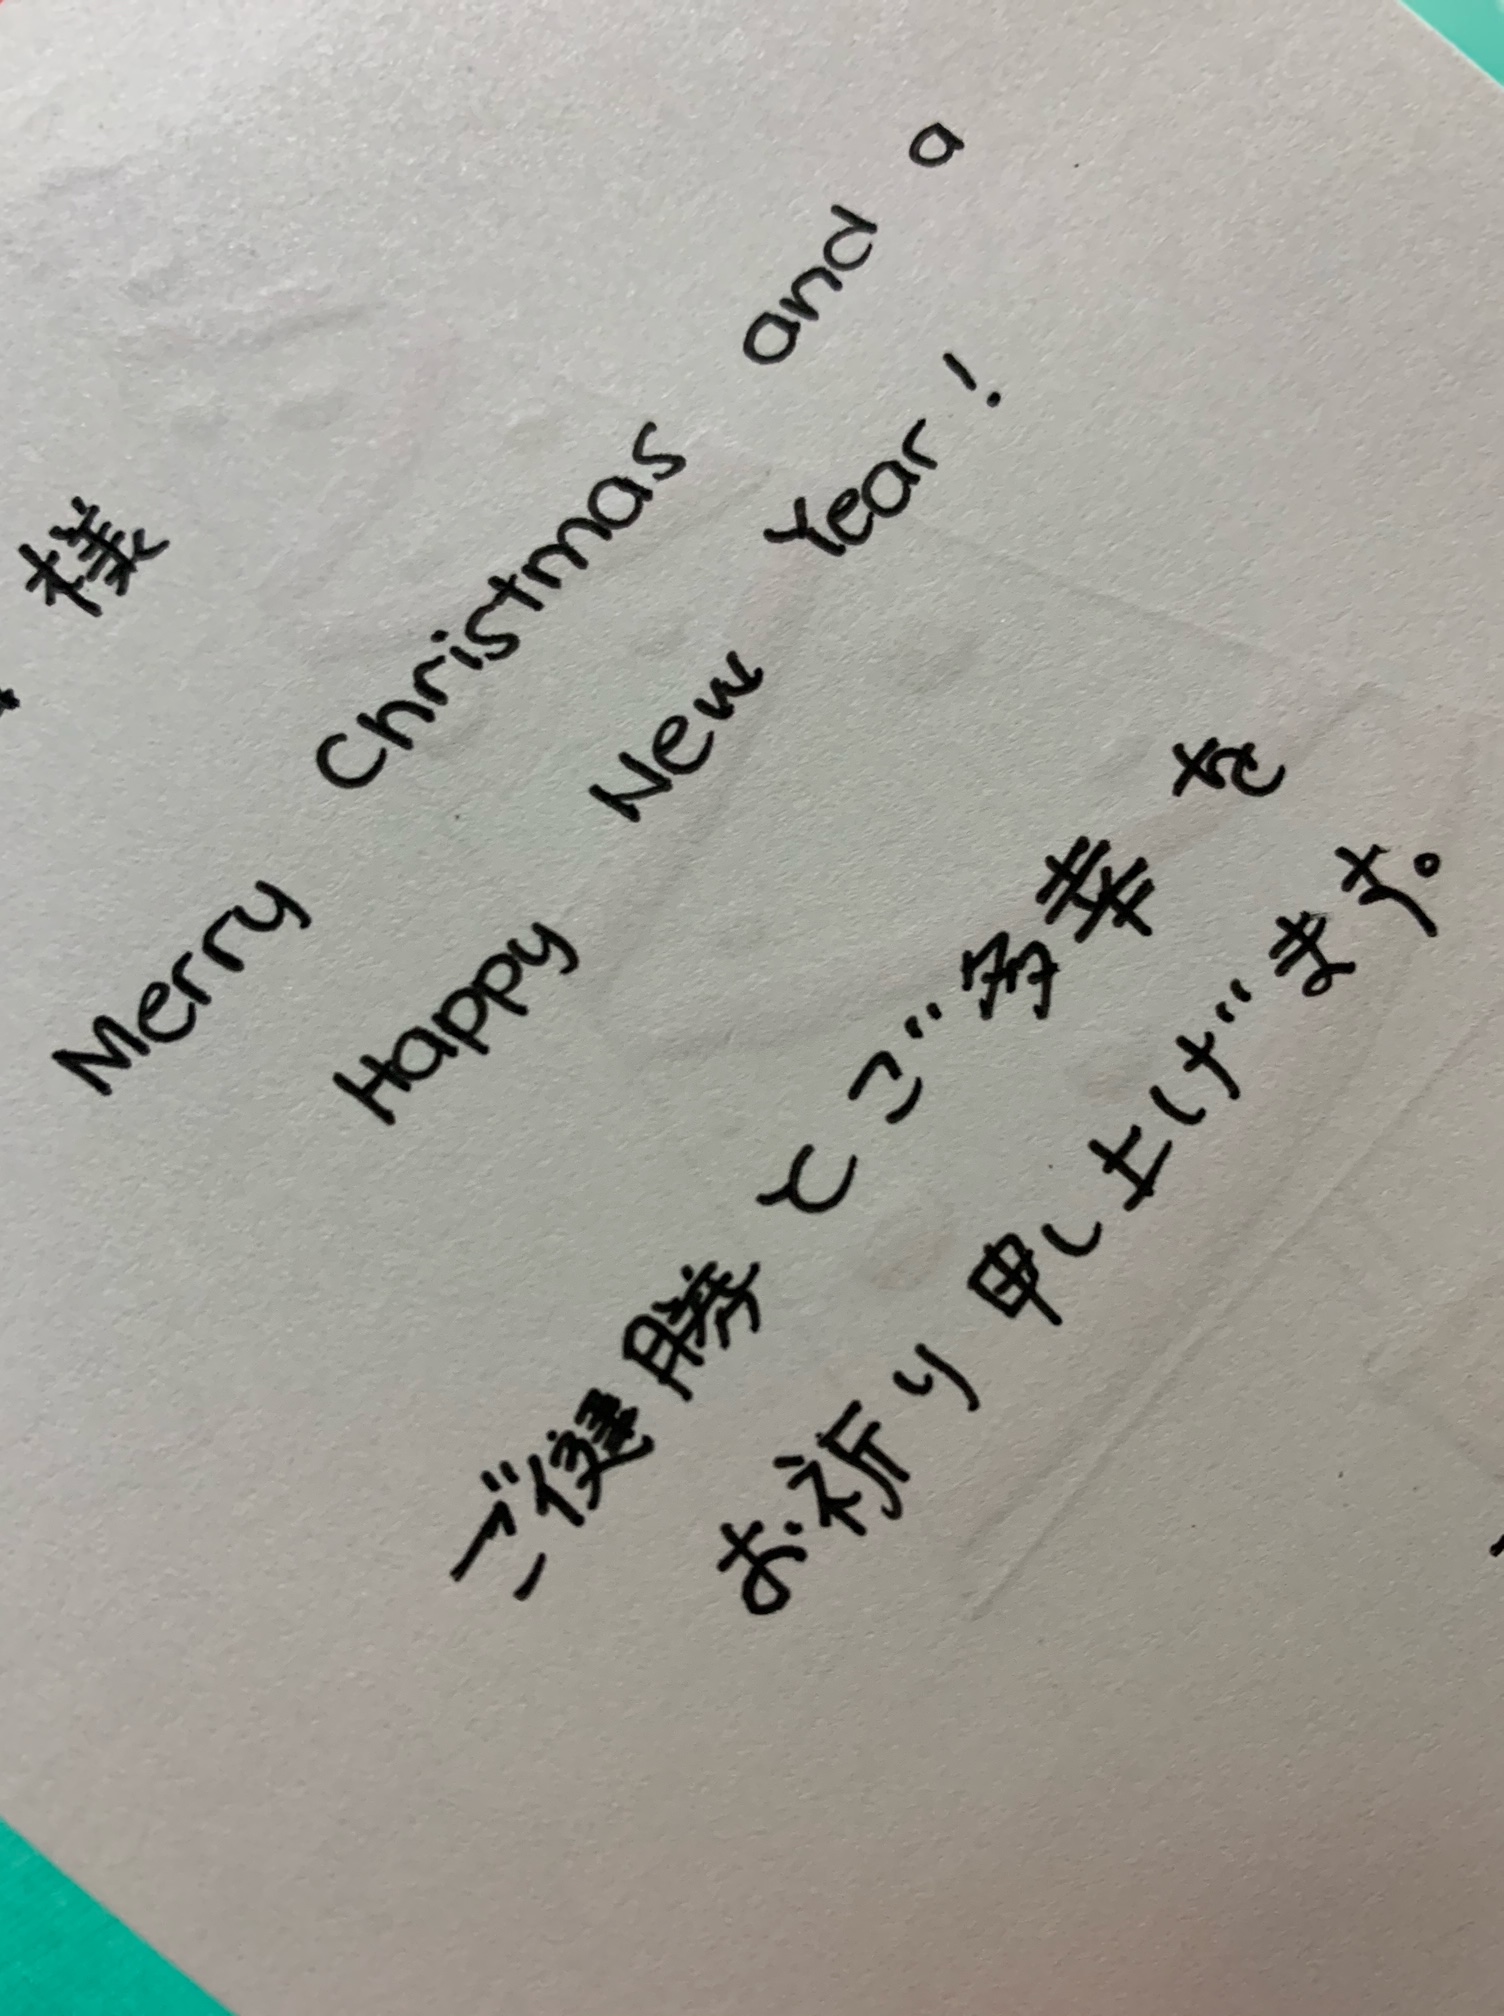 様
Merry Christmas and a
Happy New Year!
ご健勝とご多幸を
お祈り申し上げます。